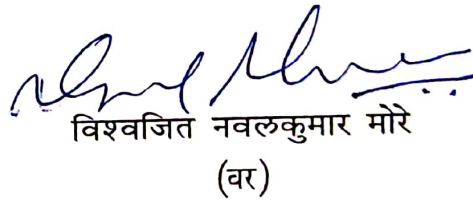 विश्वजित नवलकुमार मोरे
(वर)